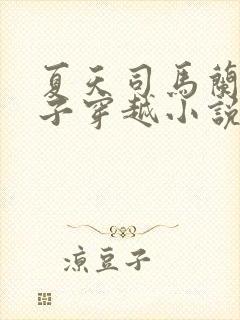 夏天司馬蘭
子穿越小說
涼豆子